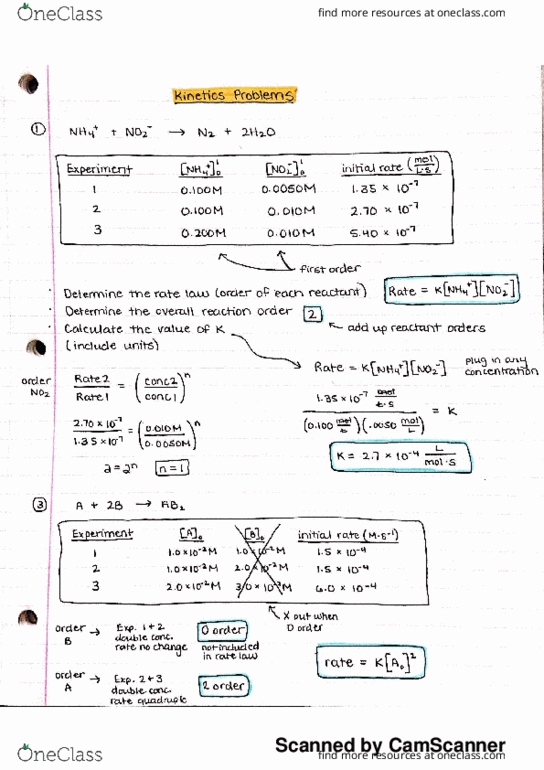 OneClass
find more resources at oneclass.com
Kinetics Problems
① NH₄⁺ + NO₂⁻ → N₂ + 2H₂O
Experiment [NH₄⁺]₀ⁱ [NO₂⁻]₀ⁱ initial rate (mol/L·s)
1 0.100M 0.0050M 1.35 × 10⁻⁷
2 0.100M 0.010M 2.70 × 10⁻⁷
3 0.200M 0.010M 5.40 × 10⁻⁷
first order
· Determine the rate law (order of each reactant) Rate = K[NH₄⁺][NO₂⁻]
· Determine the overall reaction order 2
· Calculate the value of K ← add up reactant orders
(include units)
Rate = K[NH₄⁺][NO₂⁻] plug in any concentration
order NO₂
Rate2/Rate1 = (conc2/conc1)ⁿ
1.35 × 10⁻⁷ mol/L·s / (0.100 mol/L)(.0050 mol/L) = K
2.70 × 10⁻⁷/1.35 × 10⁻⁷ = (0.010M/0.0050M)ⁿ
K = 2.7 × 10⁻⁴ L/mol·s
2 = 2ⁿ n = 1
③ A + 2B → AB₂
Experiment [A]₀ [B]₀ initial rate (M·s⁻¹)
1 1.0×10⁻²M 1.0×10⁻²M 1.5 × 10⁻⁴
2 1.0×10⁻²M 2.0×10⁻²M 1.5 × 10⁻⁴
3 2.0×10⁻²M 3.0×10⁻²M 6.0 × 10⁻⁴
X out when
0 order
order B → Exp. 1+2
double conc.
rate no change
0 order
not included
in rate law
rate = K[A₀]²
order A → Exp. 2+3
double conc.
rate quadruple
2 order
Scanned by CamScanner
OneClass
find more resources at oneclass.com